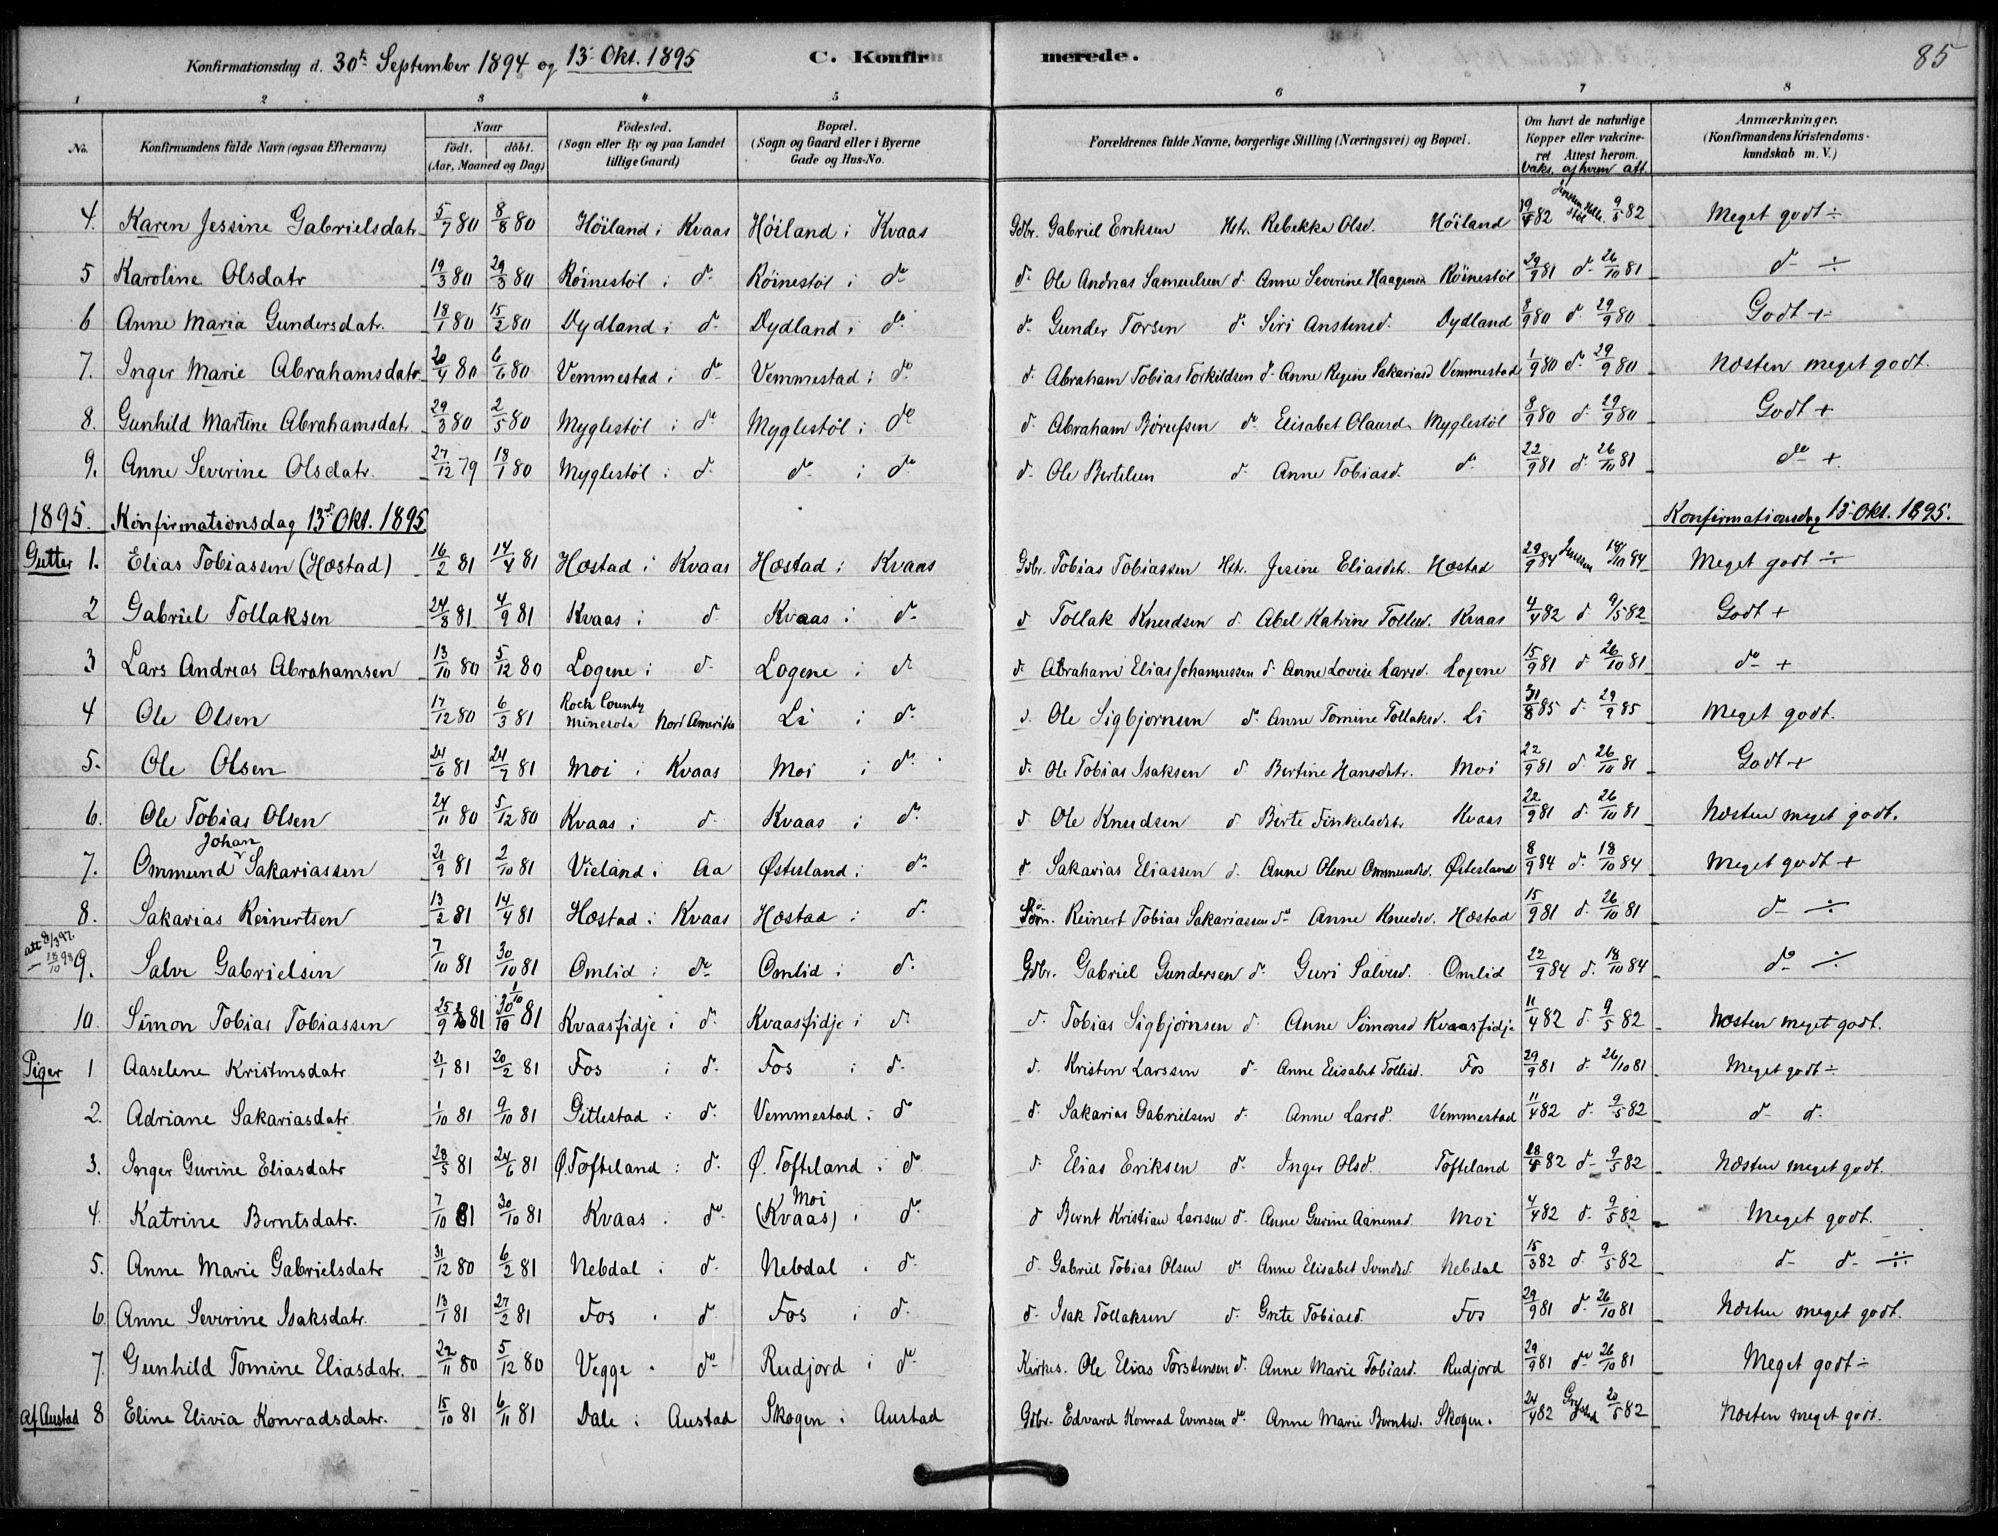 Konfirmationsdag d. 30te September 1894 og 13. Okt. 1895 C. Konfirmerede. 85
1 2 3 4 5 6 7 8
No. Konfirmandens fulde Navn (ogsaa Efternavn) Naar født. døbt. (Aar, Maaned og Dag) Fødested. (Sogn eller By og paa Landet tillige Gaard) Bopæl. (Sogn og Gaard eller i Byerne Gade og Hus-No. Forældrenes fulde Navne, borgerlige Stilling (Næringsvei) og Bopæl. Om havt de naturlige Kopper eller vakcineret. Attest herom. vaks. af hvem att. Anmærkninger. (Konfirmandens Kristendomskundskab m. V.)
4. Karen Jessine Gabrielsdatr 5/7 80 8/8 80 Høiland i Kvaas Høiland i Kvaas Gdbr. Gabriel Eriksen Hstr. Rebekka Olsd. Høiland 19/4 82 9/5 82 Meget godt ÷
5 Karoline Olsdatr 19/3 80 29/3 80 Røinestøl i do Røinestøl i do do Ole Andreas Samuelsen do Anne Severine Haagensd Røinestøl 29/9 81 do 26/10 81 do ÷
6 Anne Maria Gundersdatr. 18/1 80 15/2 80 Dydland i do Dydland i do do Gunder Torsen do Siri Anstensd. Dydland 8/9 80 do 29/9 80 Godt ÷
7. Inger Marie Abrahamsdatr 20/4 80 6/6 80 Vemmestad i do Vemmestad i do do Abraham Tobias Torkildsen do Anne Regine Sakariasd Vemmestad 1/9 80 do 29/9 80 Næsten meget godt.
8. Gunhild Martine Abrahamsdatr 29/3 80 2/5 80 Myglestøl i do Myglestøl i do do Abraham Børufsen do Elisabet Olausd. Myglestøl 8/9 80 do 29/9 80 Godt +
9. Anne Severine Olsdatr. 27/12 79 18/1 80 Myglestøl i do do i do do Ole Bertelsen do Anne Tobiasd. do 22/9 81 do 26/10 81 do +
1895. Konfirmationsdag 13de Okt. 1895. Konfirmationsdag 13. Okt. 1895.
Gutter 1. Elias Tobiassen (Hæstad) 16/2 81 14/4 81 Hæstad i Kvaas Hæstad i Kvaas Gdbr. Tobias Tobiassen Hstr. Jesine Eliasdtr. Hæstad 29/9 84 Jenssen 18/10 84 Meget godt ÷
2 Gabriel Tollaksen 24/8 81 4/9 81 Kvaas i do Kvaas i do do Tollak Knudsen do Abel Katrine Tollisd. Kvaas 4/4 82 do 9/5 82 Godt +
3 Lars Andreas Abrahamsen 13/10 80 5/12 80 Logene i do Logene i do do Abraham Elias Johannessen do Anne Lovise Larsd. Logene 15/9 81 do 26/10 81 do +
4 Ole Olsen 17/12 80 6/3 81 Rock County Minesota Nord Amerika Li i do do Ole Sigbjørnsen do Anne Tomine Tollaksd. Li 31/8 85 do 29/9 85 Meget godt.
5. Ole Olsen 24/6 81 24/7 81 Moi i Kvaas Moi i do do Ole Tobias Isaksen do Bertine Hansdtr. Moi 22/9 81 do 26/10 81 Godt +
6. Ole Tobias Olsen 24/11 80 5/12 80 Kvaas i do Kvaas i do do Ole Knudsen do Berte Finkelsdtr. Kvaas 22/9 81 do 26/10 81 Næsten meget godt.
Johan
7. Ommund Sakariassen 21/9 81 2/10 81 Vieland i Aa Østesland i do do Sakarias Eliassen do Anne Olene Ommundsd. Østesland 8/9 84 do 18/10 84 Meget godt +
8. Sakarias Reinertsen 13/2 81 14/4 81 Hæstad i Kvaas Hæstad i do Reinert Tobias Sakariassen do Anne Knudsd. Hæstad 15/9 81 do 26/10 81 do ÷
att 8/3 97. — 18/10 98 9. Salve Gabrielsen 7/10 81 30/10 81 Omlid i do Omlid i do Gdbr. Gabriel Gundersen do Guri Salvesd. Omlid 22/9 84 do 18/10 84 do ÷
10. Simon Tobias Tobiassen 25/9 81 30/10 81 Kvaasfidje i do Kvaasfidje i do do Tobias Sigbjørnsen do Anne Simonsd Kvaasfidje 11/4 82 do 9/5 82 Næsten meget godt.
Piger 1 Aaselene Kristensdatr 21/1 81 20/2 81 Fos i do Fos i do do Kristen Larssen do Anne Elisabet Tollisd. Fos 29/9 81 do 26/10 81 Meget godt ÷
2. Adriane Sakariasdatr. 1/10 81 9/10 81 Gitlestad i do Vemmestad i do do Sakarias Gabrielsen do Anne Larsd. Vemmestad 11/4 82 do 9/5 82 do do
3. Inger Gurine Eliasdatr 28/5 81 24/6 81 Ø. Tofteland i do Ø. Tofteland i do do Elias Eriksen do Inger Olsd. Tofteland 18/4 82 do 9/5 82 Næsten meget godt.
4. Katrine Berntsdatr. 7/10 81 30/10 81 Kvaas i do Moi (Kvaas) i do do Bernt Kristian Larssen do Anne Gurine Aanensd. Moi 4/4 82 do 9/5 82 Meget godt.
5. Anne Marie Gabrielsdatr 31/12 80 6/2 81 Nebdal i do Nebdal i do do Gabriel Tobias Olsen do Anne Elisabet Svendsd. Nebdal 15/3 82 do 9/5 82 do do ÷
6 Anne Severine Isaksdatr. 13/1 81 27/2 81 Fos i do Fos i do do Isak Tollaksen do Grete Tobiasd. Fos 29/9 81 do 26/10 81 Næsten meget godt.
7. Gunhild Tomine Eliasdatr. 22/11 80 5/12 80 Vegge i do Rudjord i do Kirkes. Ole Elias Torstensen do Anne Marie Tobiasd. Rudjord 29/9 81 do 26/10 81 Meget godt ÷
af Austad 8 Eline Elivia Konradsdatr. 15/10 81 6/11 81 Dale i Austad Skogen i Austad Gdbr. Edvard Konrad Evensen do Anne Marie Berntsd. Skogen. 24/4 82 20/5 82 Næsten meget godt.